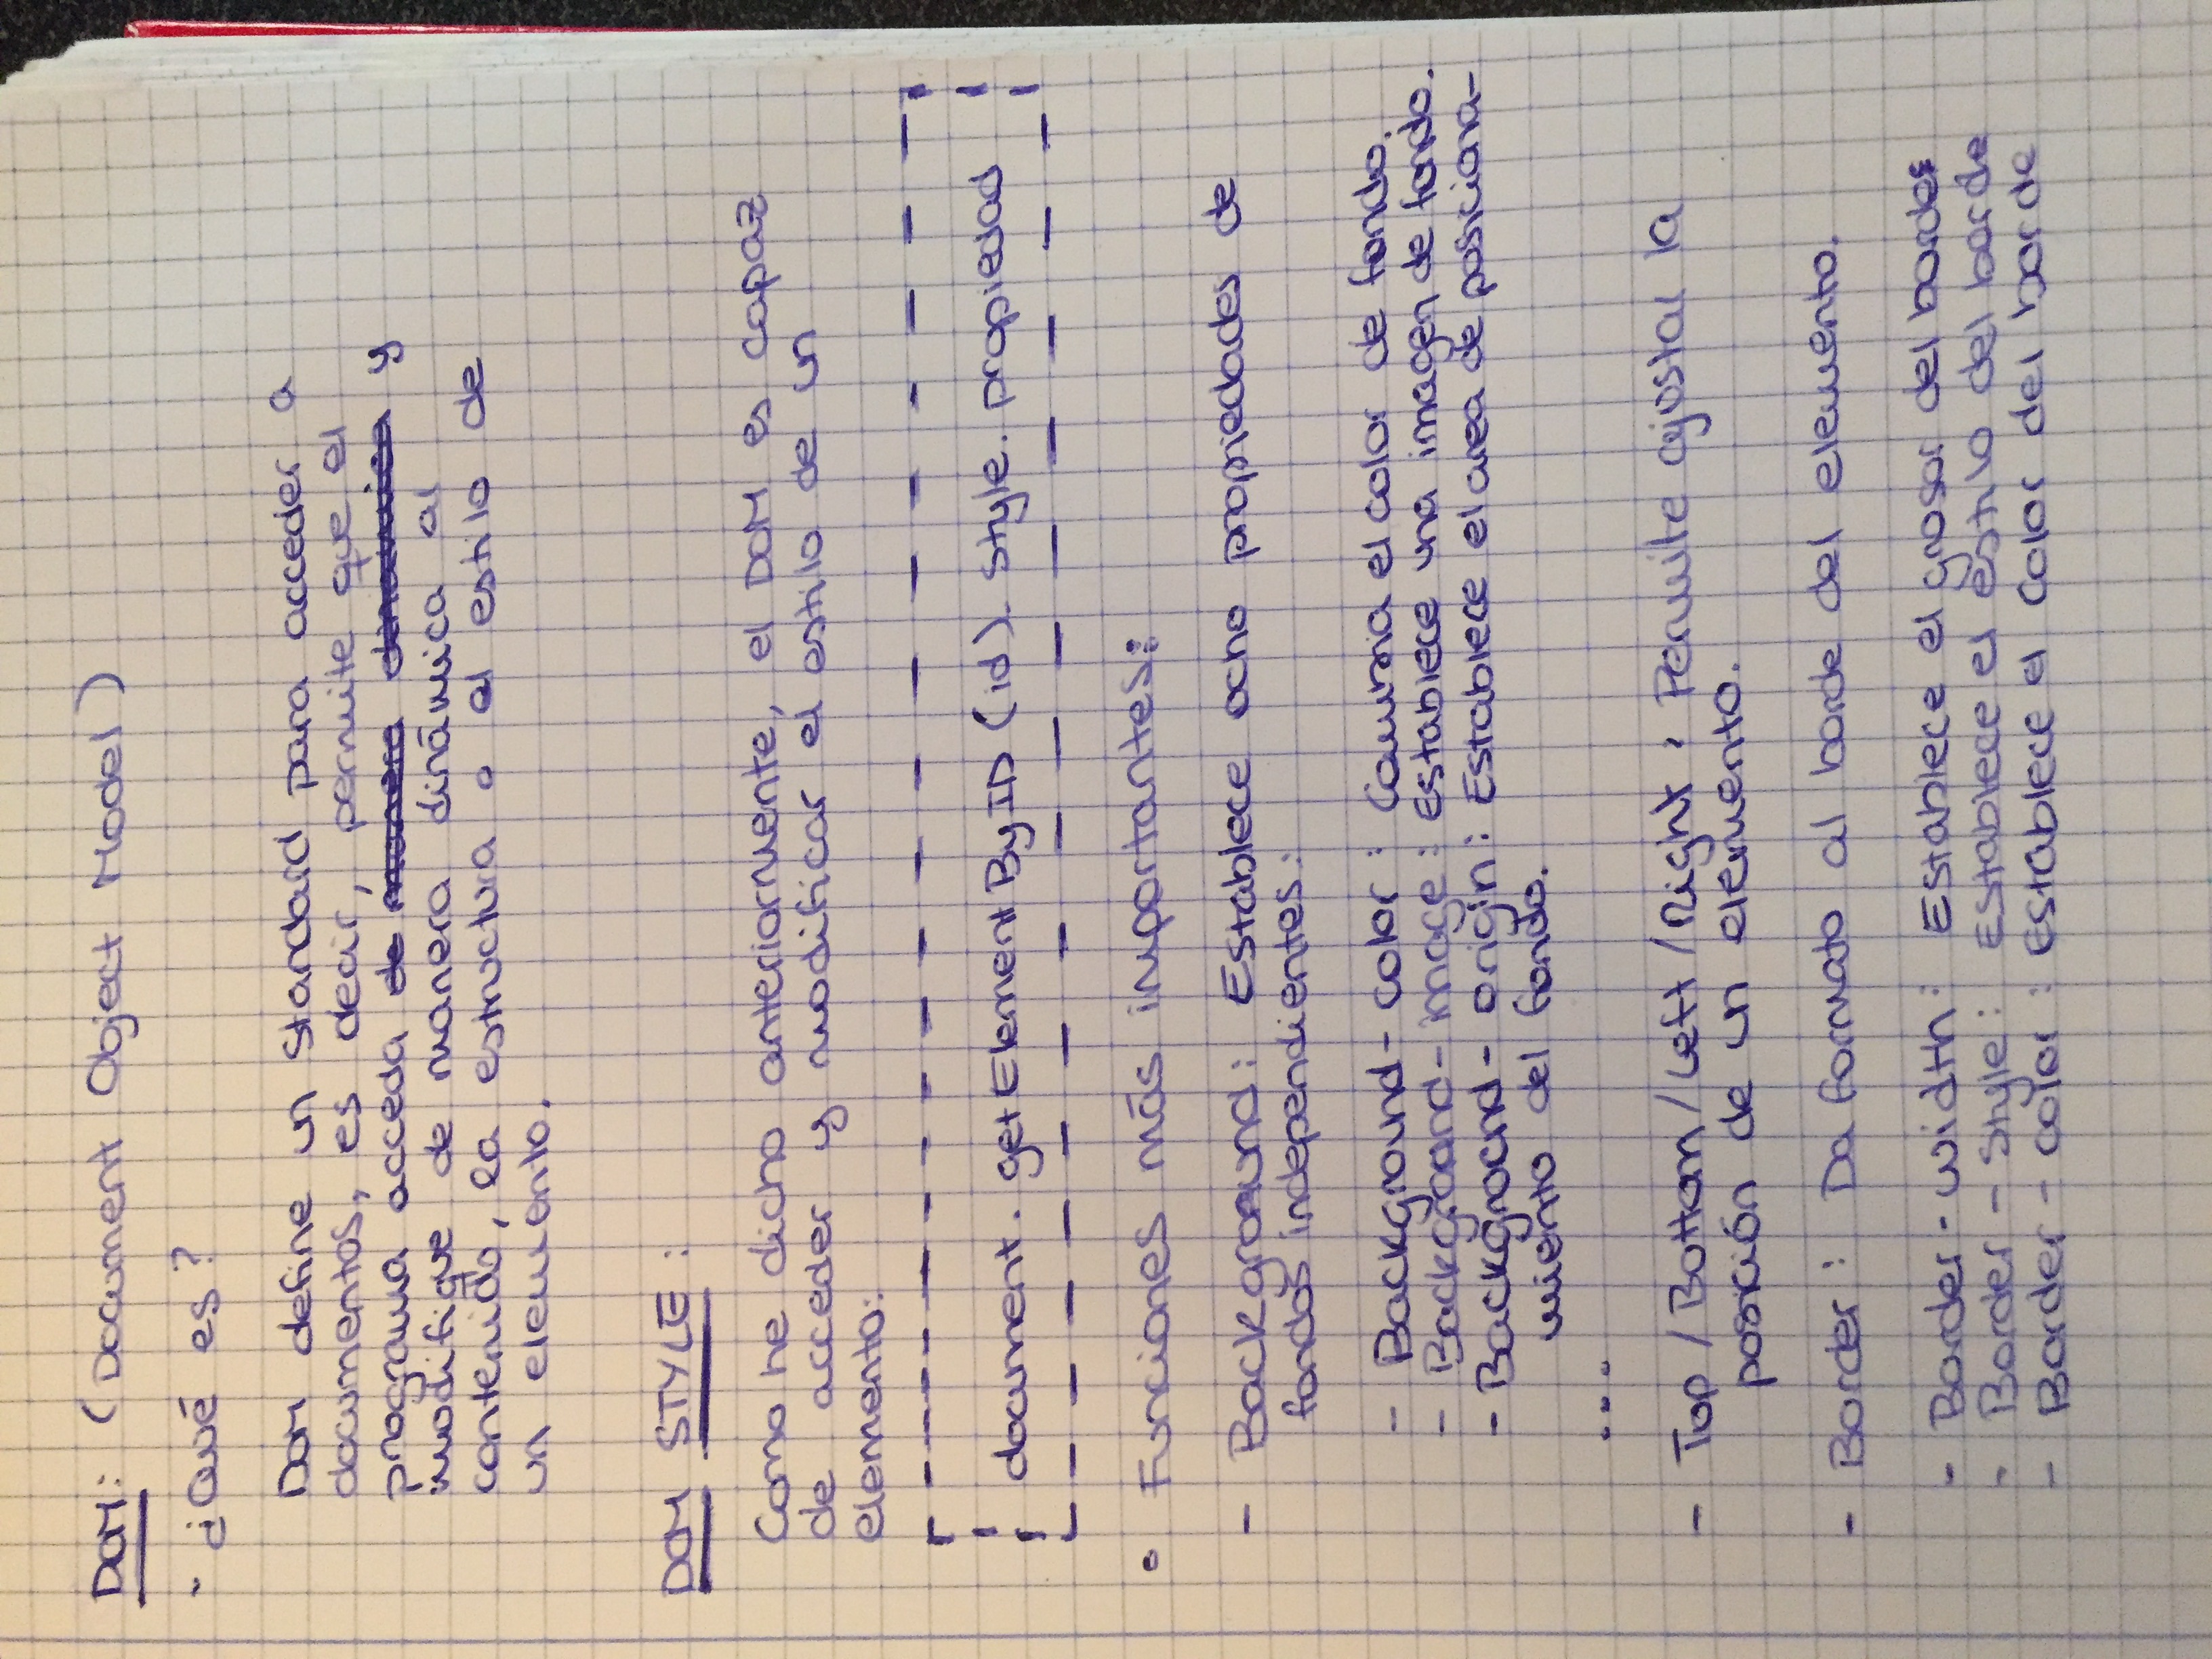 DOM: (Document Object Model)
- ¿Qué es?
DOM define un standard para acceder a
documentos, es decir, permite que el
programa acceda de manera dinamica y
modifique de manera dinámica al
contenido, la estructura o el estilo de
un elemento.
DOM STYLE:
Como he dicho anteriormente, el DOM es capaz
de acceder y modificar el estilo de un
elemento:
document. getElementByID (id). style. propiedad
• Funciones más importantes:
- Background: Establece ocho propiedades de
fondos independientes:
- Background-color: Cambia el color de fondo.
- Background-image: Establece una imagen de fondo.
- Background-origin: Establece el area de posiciona-
miento del fondo.
...
- Top/Bottom/Left/Right: Permite ajustar la
posición de un elemento.
- Border: Da formato al borde del elemento.
- Border-width: Establece el grosor del borde
- Border-Style: Establece el estilo del borde
- Border-color: Establece el color del borde